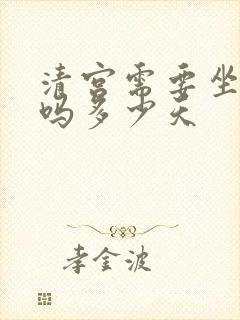 清宫需要坐
吗多少天
李金波